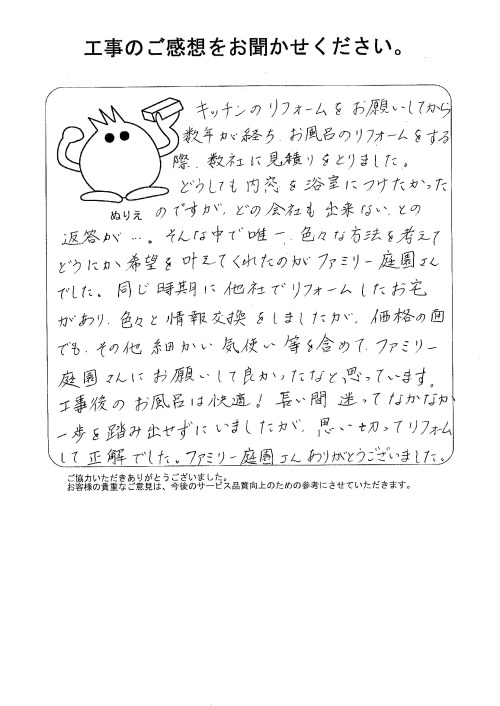 工事のご感想をお聞かせください。
キッチンのリフォームをお願いしてから
数年が経ち、お風呂のリフォームをする
際、数社に見積りをとりました。
どうしても内窓を浴室につけたかった
ぬりえ
のですが、どの会社も出来ないとの
返答が…。そんな中で唯一、色々な方法を考えて
どうにか希望を叶えてくれたのがファミリー庭園さん
でした。同じ時期に他社でリフォームしたお宅
があり、色々と情報交換をしましたが、価格の面
でも、その他細かい気使い等を含めて、ファミリー
庭園さんにお願いして良かったなと思っています。
工事後のお風呂は快適!長い間迷ってなかなか
一歩を踏み出せずにいましたが、思い切ってリフォーム
して正解でした。ファミリー庭園さんありがとうございました。
ご協力いただきありがとうございました。
お客様の貴重なご意見は、今後のサービス品質向上のための参考にさせていただきます。